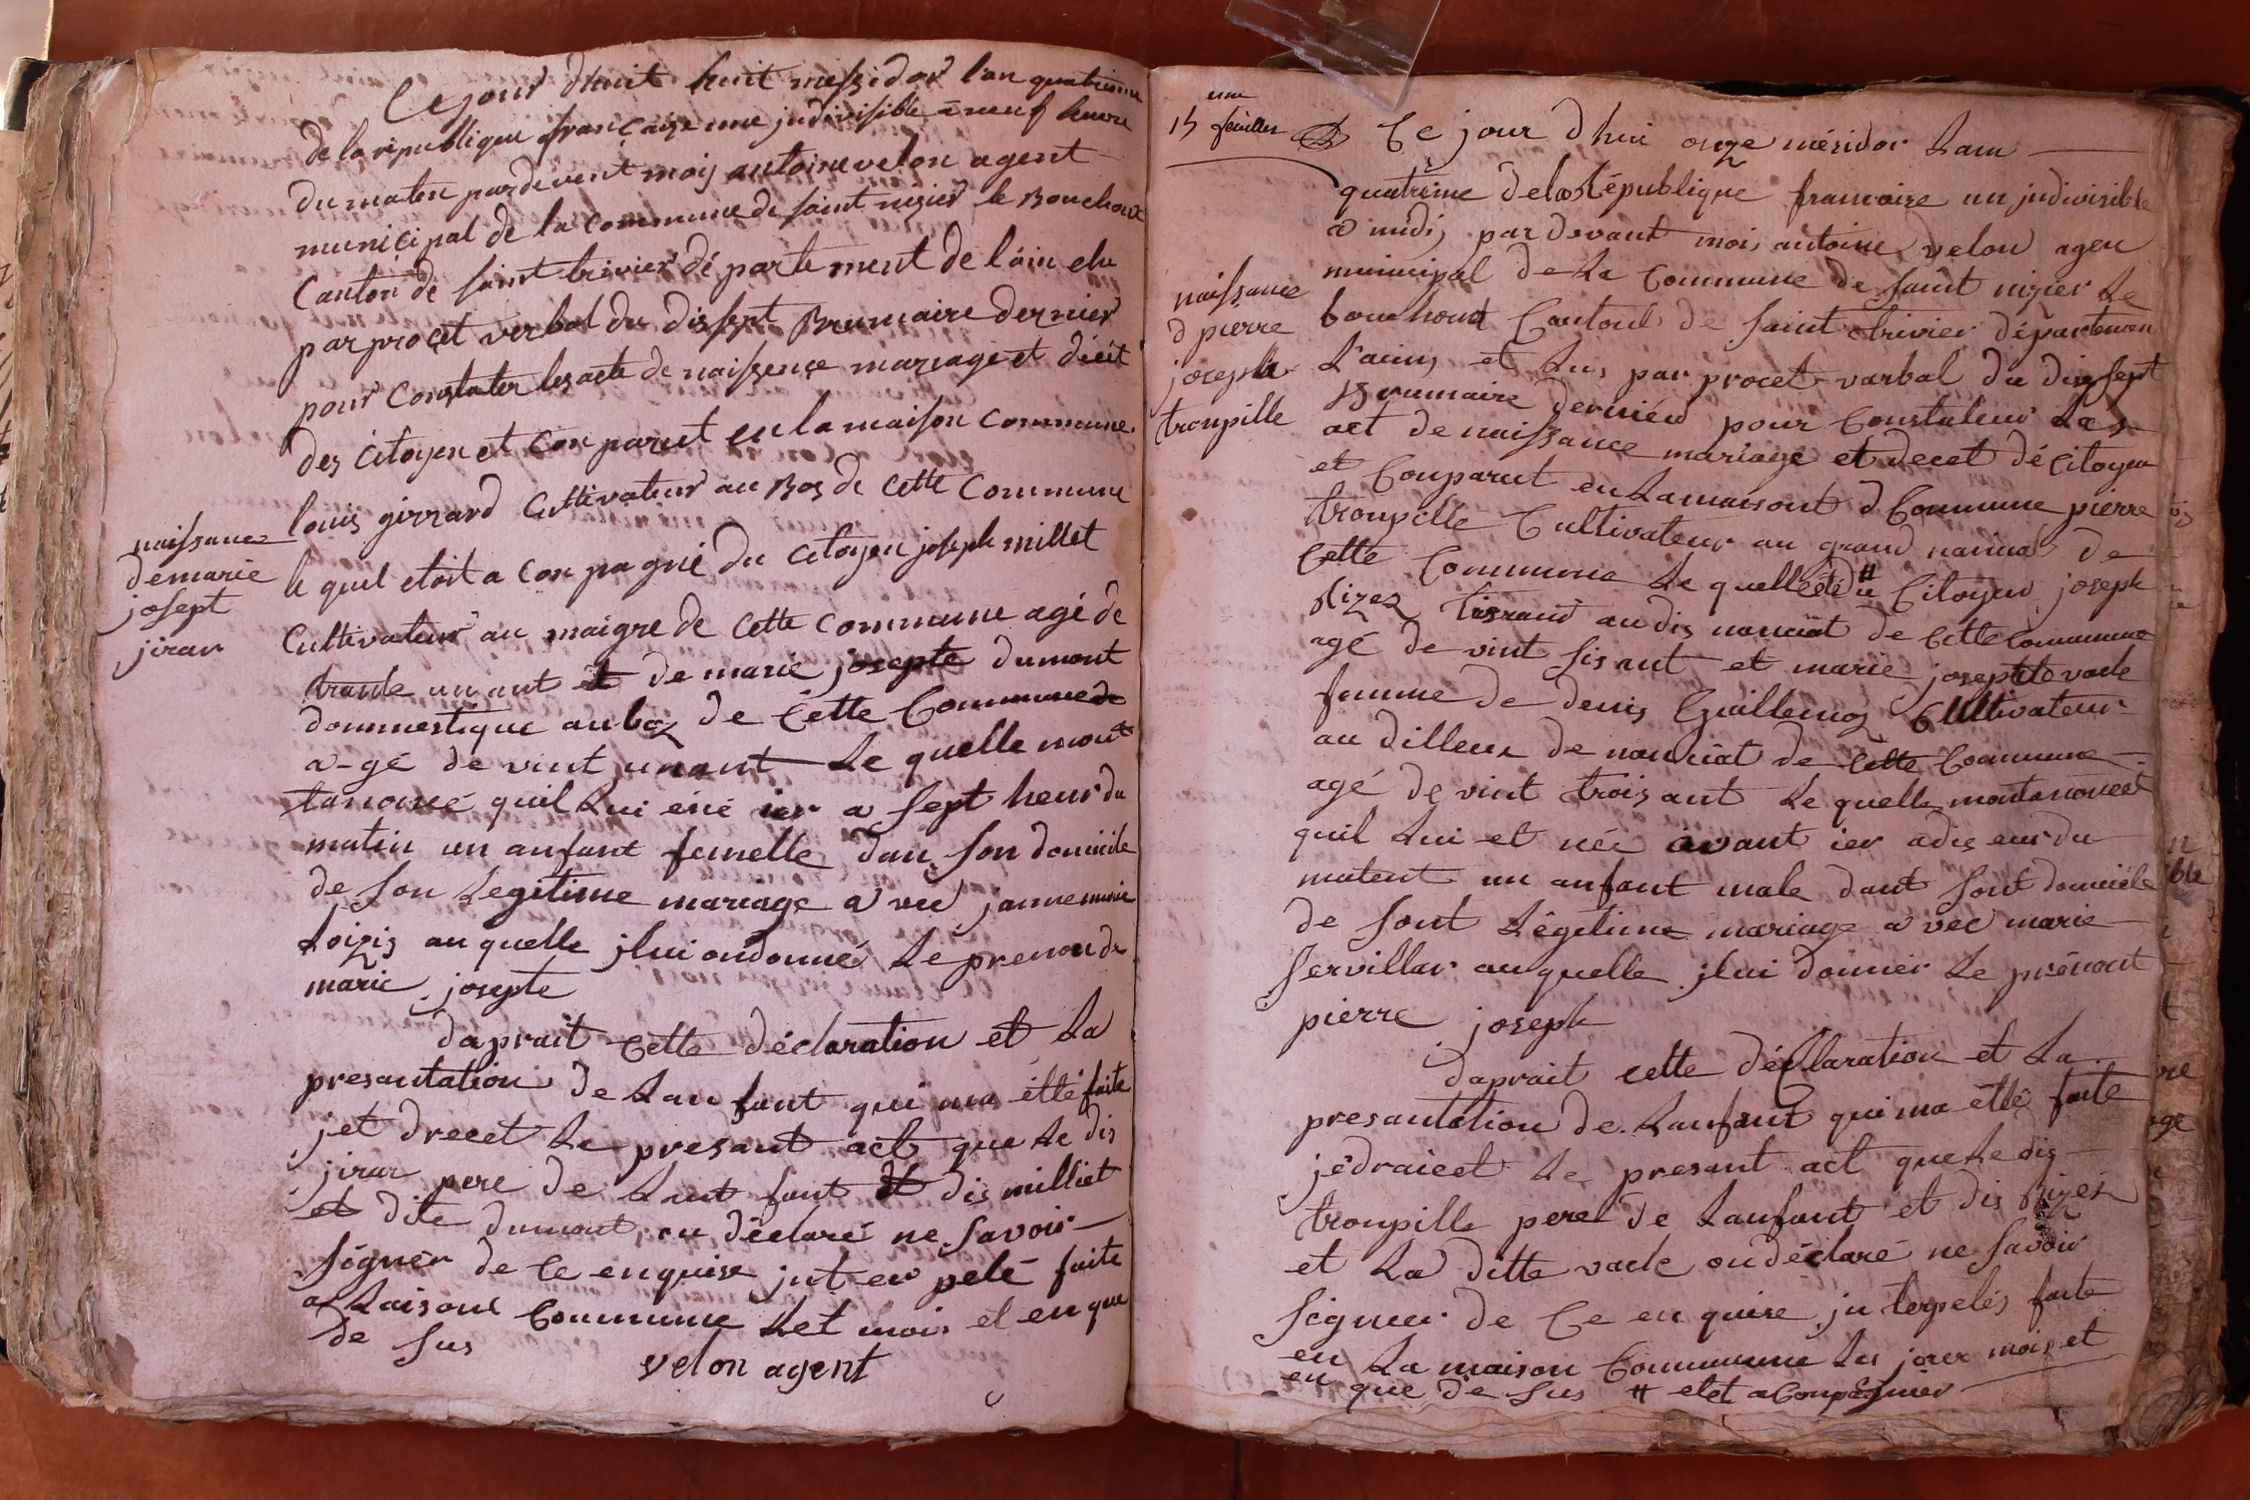 Ce jour dhuit huit messidor l'an quatrieme
de la republique francaise une jndivisible a neuf heure
du maten pardevent moy antoine velon agent
municipal de la commune de saint nizier le Bouchoux
Canton de saint trivier dé parte ment de lain elu
par procet verbal du dissept Brumaire dernier
pour Constater les acte de naissence mariage et décét
des citoyen et Con parut en la maison commune
louis girrard Cultivateur au Bos de cette Commune
le quel etoit a Con pagné du citoyen joseph millet
Cultivateur au maigre de cette commune agé de
trante un ant et de marie josepte dumont
dommestique au boz de Cette Commune de
a-gé de vint un ant Le quelle mont
tanoncé quil Lui éné ier a sept heur du
matin un anfant femelle dan son domicile
de son Legitime mariage a vec janne marie
Loizis au quelle jlui ondonné Le prenon de
marie josepte
naissance
de marie
josept
jirar
daprait cette déclaration et La
presantation de Lan fant qui ma étté faite
jet drecet Le presant act que Le dis
jirar pere de Lant fant et dis milliet
et dite dumont, on déclaré ne savoir
signér de Ce enquise jnt er pelé faite
a Laisont Commune Let mois et en que
de sus
velon agent
15 eme feuillet
Ce jour d hui onze mésidor Lan
quatrème de la République francaise un jndivisible
a midi, par devant mois antoine velon agen
municipal de La Commune de saint nizier Le
bouchout Canton de saint trivier départemen
L'ain, et Lus par procet varbal du dis sept
Brumaire derniér pour Constateur Les
act de naissance mariage et decet dé citoyen
et Conparut en La maisont d Commune pierre
troupille Cultivateur au grand nancuat de
Cette Commune Le quelle été # du Citoyen joseph
Rizez tisrand au dis nancuat de Cette Commune
agé de vint sis ant et marie josepte vade
femme de denis Guillemoz Cultivateur
au dilleur de nancuat de Cette Commune
agé de vint trois ant Le quelle montanoncét
quil Lui et néé avant ier a dis eur du
matent un anfant male dant sont domicile
de sont Légitime mariage a vec marie
servillar auquelle jlui donnér Le prénont
pierre joseph
naissance
d pierre
joseph
troupille
daprait cette déClaration et La
presantation de Lanfant qui ma étté faite
jédraicet Le presant act que Le dis
troupille pere de Lanfant et dis Rizez
et La ditte vade on déclaré ne savoir
signer de Ce en quise jn terpelés faite
en La maison Commune Les jour mois et
en que de sus # etet a Conpagnier